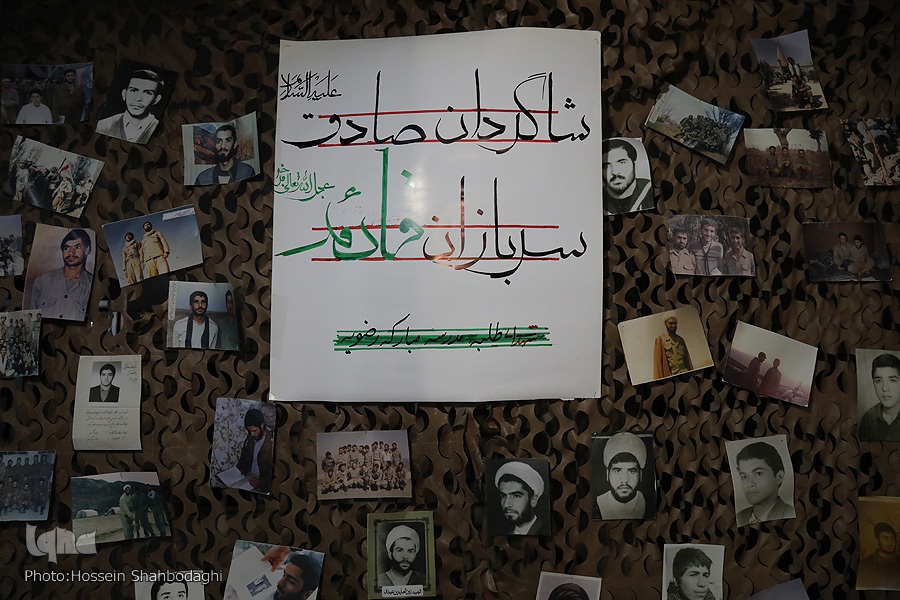 شاگردان صادق علیه السلام
سربازان قائمند عجل الله تعالی فرجه
شهدای طلبه مدرسه مبارکه رضویه
iqna
Photo:Hossein Shahbodaghi